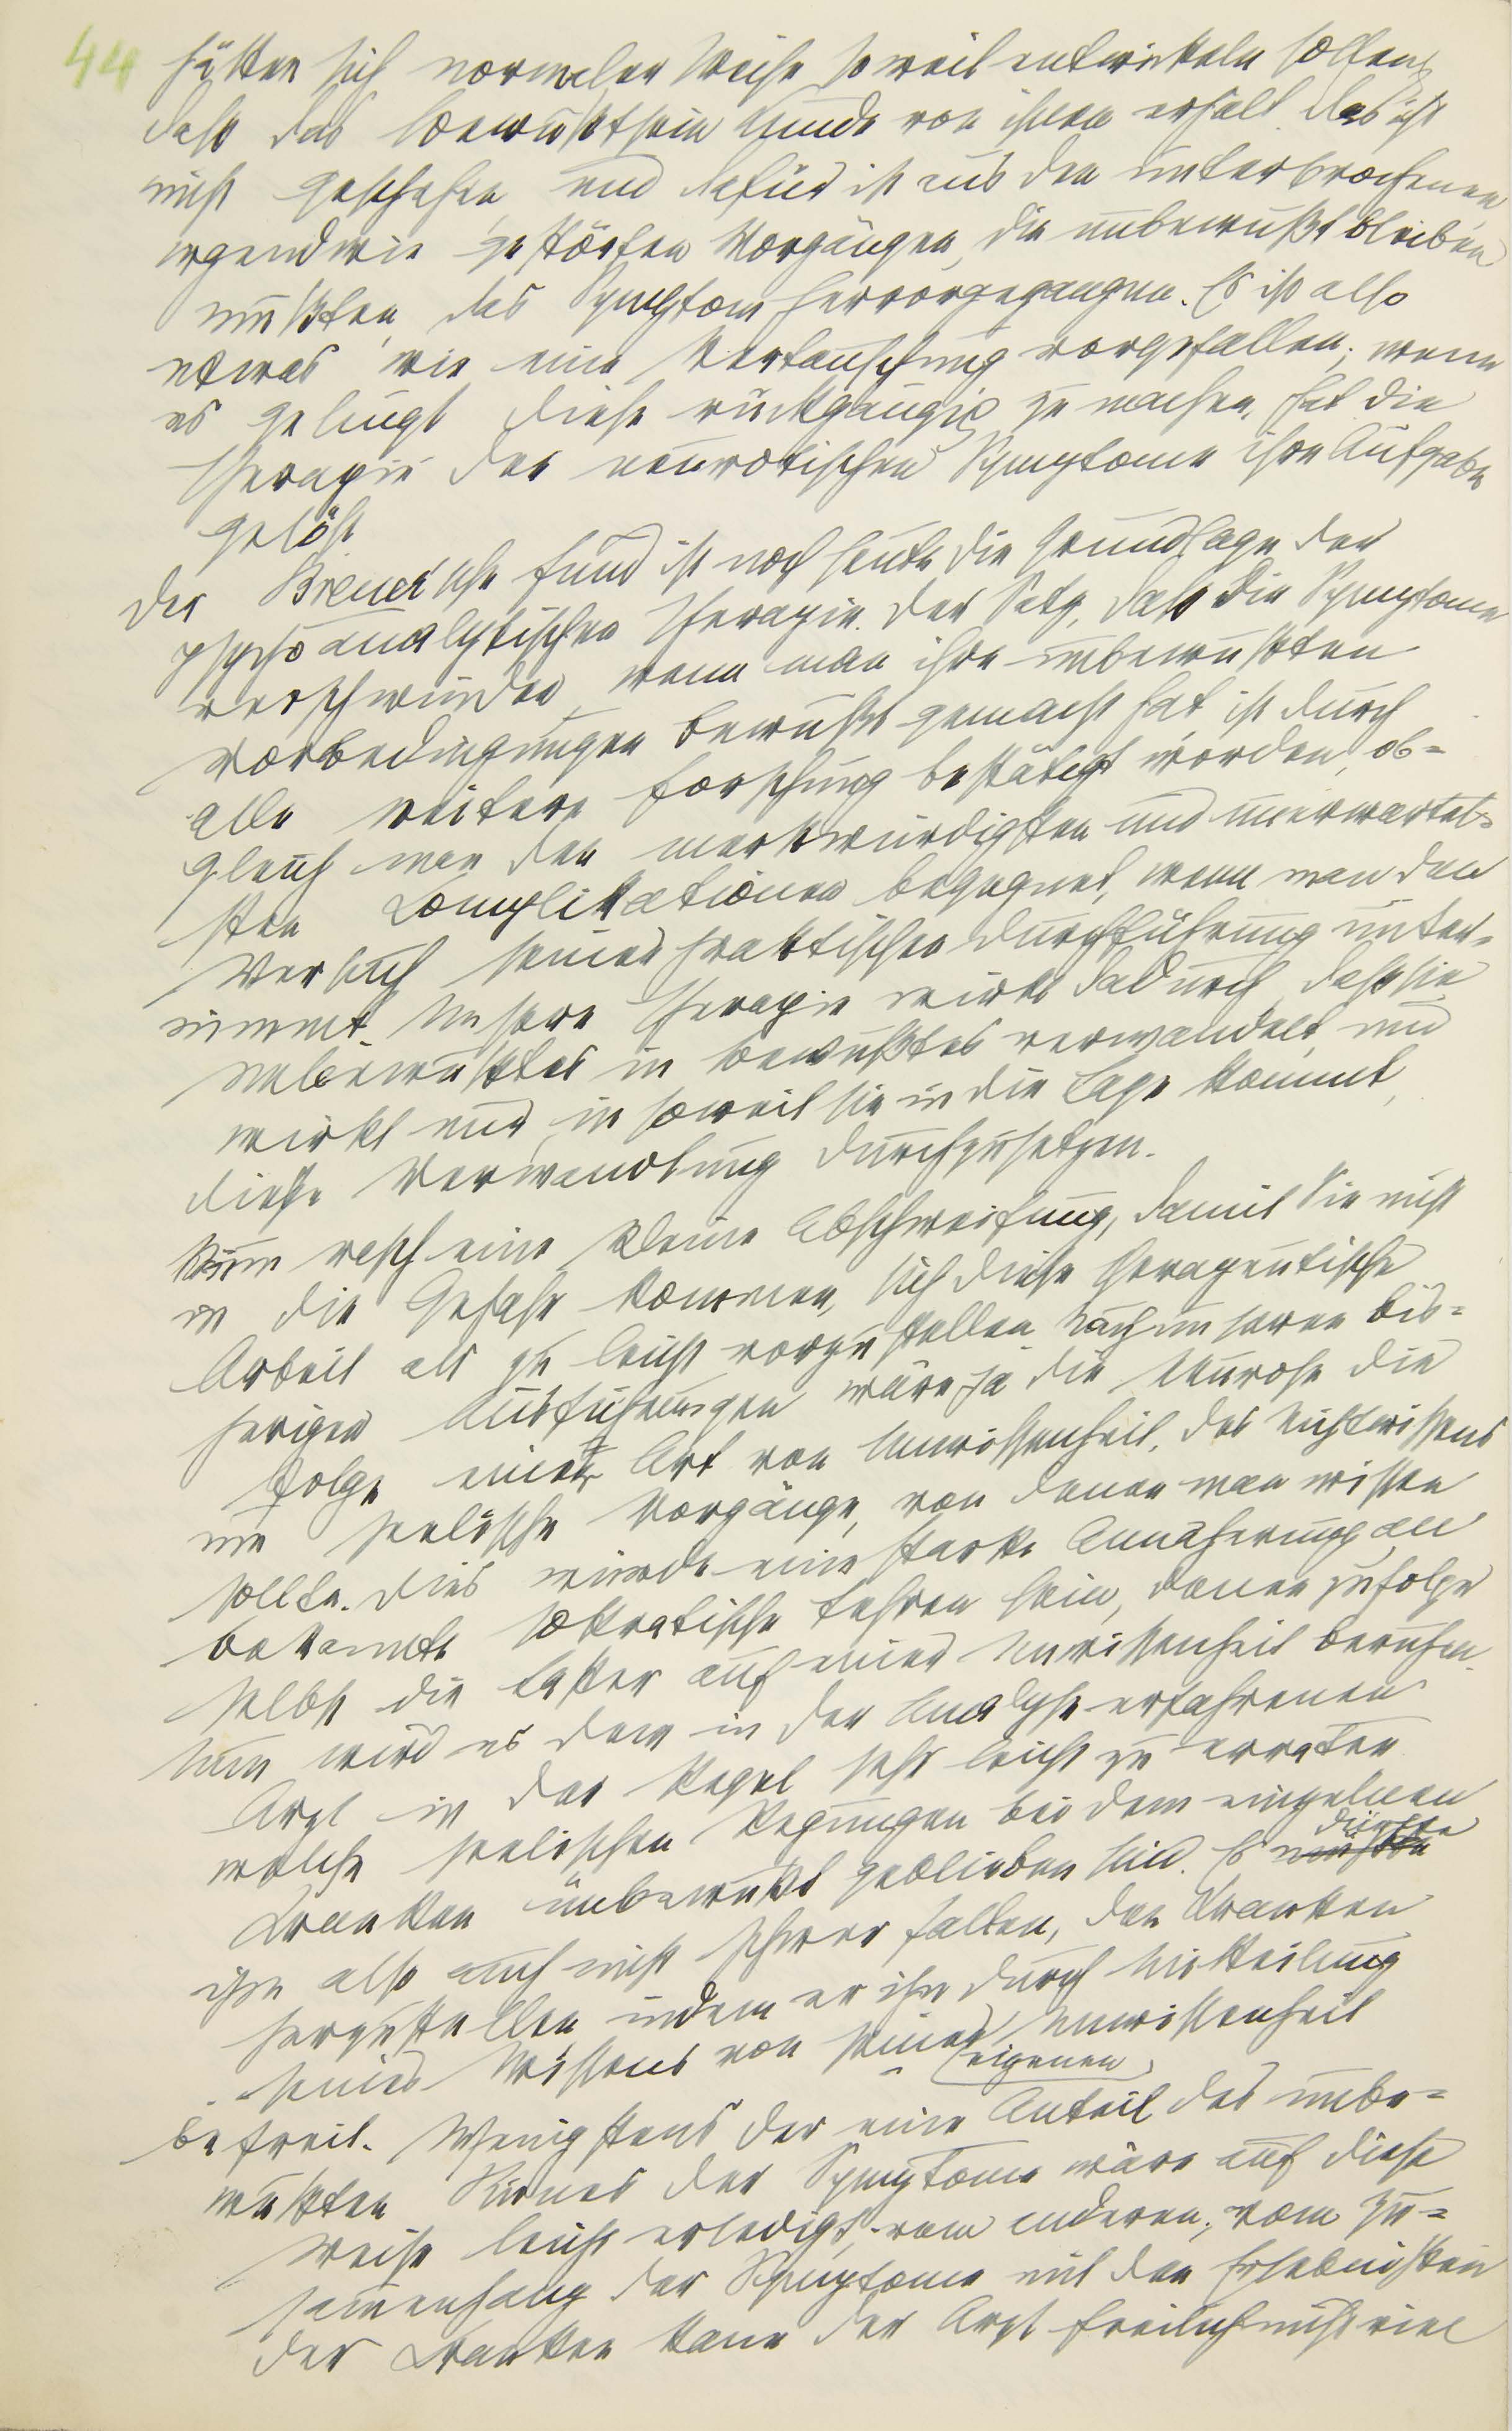 44
hätten sich normaler Weise so weit entwickeln sollen,
dass das Bewusstsein Kunde von ihnen erhält. Das ist
nicht geschehen und dafür ist aus den unterbrochenen
irgendwie gestörten Vorgängen, die unbewusst bleiben
mussten, das Symptom hervorgegangen. Es ist also
etwas wie eine Vertauschung vorgefallen; wenn
es gelingt diese rückgängig zu machen, hat die
Therapie der neurotischen Symptome ihre Aufgabe
gelöst.
Der Breuer'sche Fund ist noch heute die Grundlage der
psychoanalytischen Therapie. Der Satz, dass die Symptome
verschwinden, wenn man ihre unbewussten
Vorbedingungen bewusst gemacht hat, ist durch
alle weitere Forschung bestätigt worden, ob=
gleich man den merkwürdigsten und unerwartet=
sten Complikationen begegnet, wenn man den
Versuch seiner praktischen Durchführung unter=
nimmt. Unsere Therapie wirkt dadurch, dass sie
Unbewusstes in Bewusstes verwandelt, und
wirkt nur, in soweit sie in die Lage kommt,
diese Verwandlung durchzusetzen.
Nun rasch eine kleine Abschweifung, damit Sie nicht
in die Gefahr kommen, sich diese therapeutische
Arbeit als zu leicht vorzustellen. Nach unseren bis=
herigen Ausführungen wäre ja die Neurose die
Folge einer Art von Unwissenheit, des Nichtwissens
um seelische Vorgänge, von denen man wissen
sollte. Dies würde eine starke Annäherung an
bekannte sokratische Lehren sein, denen zufolge
selbst die Laster auf einer Unwissenheit beruhen.
Nun wird es dem in der Analyse erfahrenen
Arzt in der Regel sehr leicht zu erraten
welche seelischen Regungen bei dem einzelnen
Kranken unbewusst geblieben sind. Es müsste dürfte
ihm also auch nicht schwer fallen, den Kranken
herzustellen indem er ihn durch Mitteilung
seines Wissens von seiner eigenen Unwissenheit
befreit. Wenigstens der eine Anteil des unbe=
wussten Sinnes der Symptome wäre auf diese
Weise leicht erledigt, vom anderen, vom Zu=
sammenhang der Symptome mit den Erlebnissen
des Kranken kann der Arzt freilich nicht viel